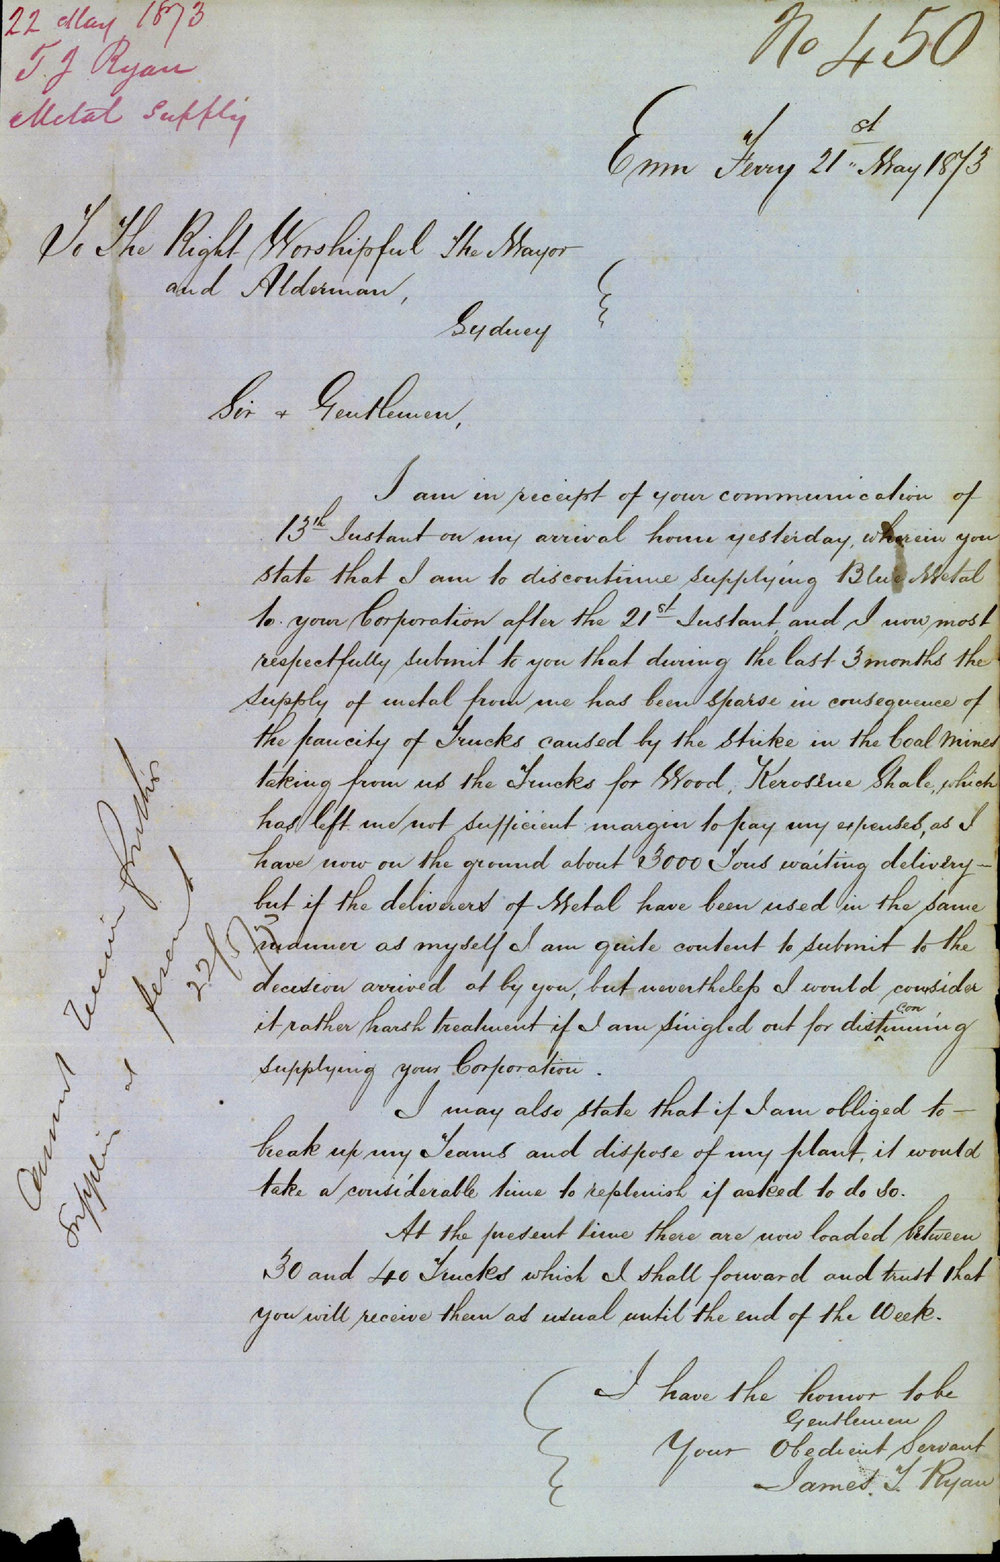 22 May 1873
T J Ryan
Metal Supply
No 450
Emu Ferry 21st May 1873
To The Right Worshipful The Mayor
and Alderman,
Sydney
Sir & Gentlemen,
I am in receipt of your communication of
13th Instant on my arrival home yesterday, wherein you
state that I am to discontinue supplying Blue Metal
to your Corporation after the 21st Instant, and I now most
respectfully submit to you that during the last 3 months the
supply of metal from me has been sparse in consequence of
the paucity of Trucks caused by the strike in the Coal Mines
taking from us the Trucks for Wood, Kerosine Shale, which
has left me not sufficient margin to pay my expenses, as I
have now on the ground about 3000 Tons waiting delivery –
but if the deliverers of Metal have been used in the same
manner as myself I am quite content to submit to the
decision arrived at by you, but nevertheless I would consider
it rather harsh treatment if I am singled out for distinuing
con
supplying your Corporation.
I may also state that if I am obliged to –
break up my Teams and dispose of my plant, it would
take a considerable time to replenish if asked to do so.
At the present time there are now loaded between
30 and 40 Trucks which I shall forward and trust that
you will receive them as usual until the end of the Week.
I have the honor to be
Gentlemen
Your Obedient Servant
James. T. Ryan
Cannot receive further
supplies at present
22/5/73